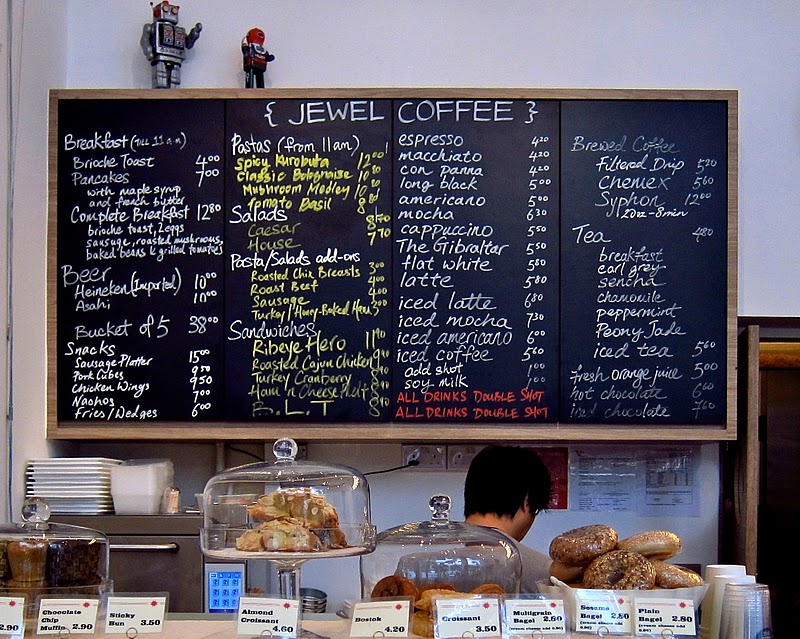 { JEWEL COFFEE }
Breakfast (Till 11 a.m)
Brioche Toast 4.00
Pancakes 7.00
with maple syrup
and french butter
Complete Breakfast 12.80
brioche toast, 2 eggs
sausage, roasted mushrooms,
baked beans & grilled tomatoes
Beer
Heineken (Imported) 10.00
Asahi 10.00
Bucket of 5 38.00
Snacks
Sausage Platter 15.00
Pork Cubes 9.50
Chicken Wings 9.50
Nachos 7.00
Fries/Wedges 6.00
Pastas (from 11am)
Spicy Kurobuta 12.00
Classic Bolognaise 10.80
Mushroom Medley 10.80
Tomato Basil 8.80
Salads
Caesar 8.70
House 7.70
Pasta/Salads add-ons
Roasted Chix Breasts 3.00
Roast Beef 4.00
Sausage
Turkey/Honey-Baked Ham 3.00
Sandwiches
Ribeye Hero 11.90
Roasted Cajun Chicken
Turkey Cranberry
Ham 'n Cheese Melt
B.L.T
espresso 4.20
macchiato 4.20
con panna 4.20
long black 5.00
americano 5.00
mocha 6.30
cappuccino 5.50
The Gibraltar 5.50
flat white 5.80
latte 5.80
iced latte 6.80
iced mocha 7.30
iced americano 6.00
iced coffee 5.60
add shot 1.00
soy milk 1.00
ALL DRINKS DOUBLE SHOT
ALL DRINKS DOUBLE SHOT
Brewed Coffee
Filtered Drip 5.20
Chemex 5.60
Syphon 12.00
20oz - 8min
Tea 4.80
breakfast
earl grey
sencha
chamomile
peppermint
Peony Jade
iced tea 5.60
fresh orange juice 5.00
hot chocolate 6.60
iced chocolate 7.60
2.90
Chocolate
Chip
Muffin 2.90
Sticky
Bun 3.50
Almond
Croissant 4.60
Bostok 4.20
Croissant 3.50
Multigrain
Bagel 2.80
Sesame
Bagel 2.50
Plain
Bagel 2.80